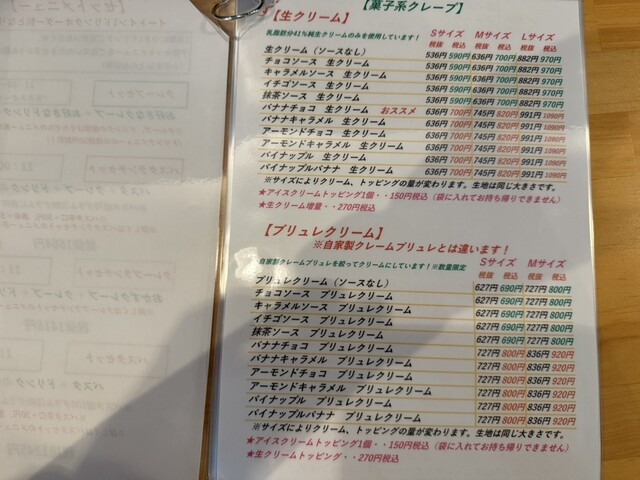 【菓子系クレープ】
【生クリーム】
乳脂肪分41%純生クリームのみを使用しています! Sサイズ Mサイズ Lサイズ
税抜 税込 税抜 税込 税抜 税込
生クリーム（ソースなし） 536円 590円 636円 700円 882円 970円
チョコソース 生クリーム 536円 590円 636円 700円 882円 970円
キャラメルソース 生クリーム 536円 590円 636円 700円 882円 970円
イチゴソース 生クリーム 536円 590円 636円 700円 882円 970円
抹茶ソース 生クリーム 536円 590円 636円 700円 882円 970円
バナナチョコ 生クリーム おススメ 636円 700円 745円 820円 991円 1090円
バナナキャラメル 生クリーム 636円 700円 745円 820円 991円 1090円
アーモンドチョコ 生クリーム 636円 700円 745円 820円 991円 1090円
アーモンドキャラメル 生クリーム 636円 700円 745円 820円 991円 1090円
パイナップル 生クリーム 636円 700円 745円 820円 991円 1090円
パイナップルバナナ 生クリーム 636円 700円 745円 820円 991円 1090円
※サイズによりクリーム、トッピングの量が変わります。生地は同じ大きさです。
★アイスクリームトッピング1個・・150円税込（袋に入れてお持ち帰りできません）
★生クリーム増量・・270円税込
【ブリュレクリーム】
※自家製クレームブリュレとは違います!
自家製クレームブリュレを絞ってクリームにしています!※数量限定 Sサイズ Mサイズ
税抜 税込 税抜 税込
ブリュレクリーム（ソースなし） 627円 690円 727円 800円
チョコソース ブリュレクリーム 627円 690円 727円 800円
キャラメルソース ブリュレクリーム 627円 690円 727円 800円
イチゴソース ブリュレクリーム 627円 690円 727円 800円
抹茶ソース ブリュレクリーム 627円 690円 727円 800円
バナナチョコ ブリュレクリーム 727円 800円 836円 920円
バナナキャラメル ブリュレクリーム 727円 800円 836円 920円
アーモンドチョコ ブリュレクリーム 727円 800円 836円 920円
アーモンドキャラメル ブリュレクリーム 727円 800円 836円 920円
パイナップル ブリュレクリーム 727円 800円 836円 920円
パイナップルバナナ ブリュレクリーム 727円 800円 836円 920円
※サイズによりクリーム、トッピングの量が変わります。生地は同じ大きさです。
★アイスクリームトッピング1個・・150円税込（袋に入れてお持ち帰りできません）
★生クリームトッピング・・270円税込